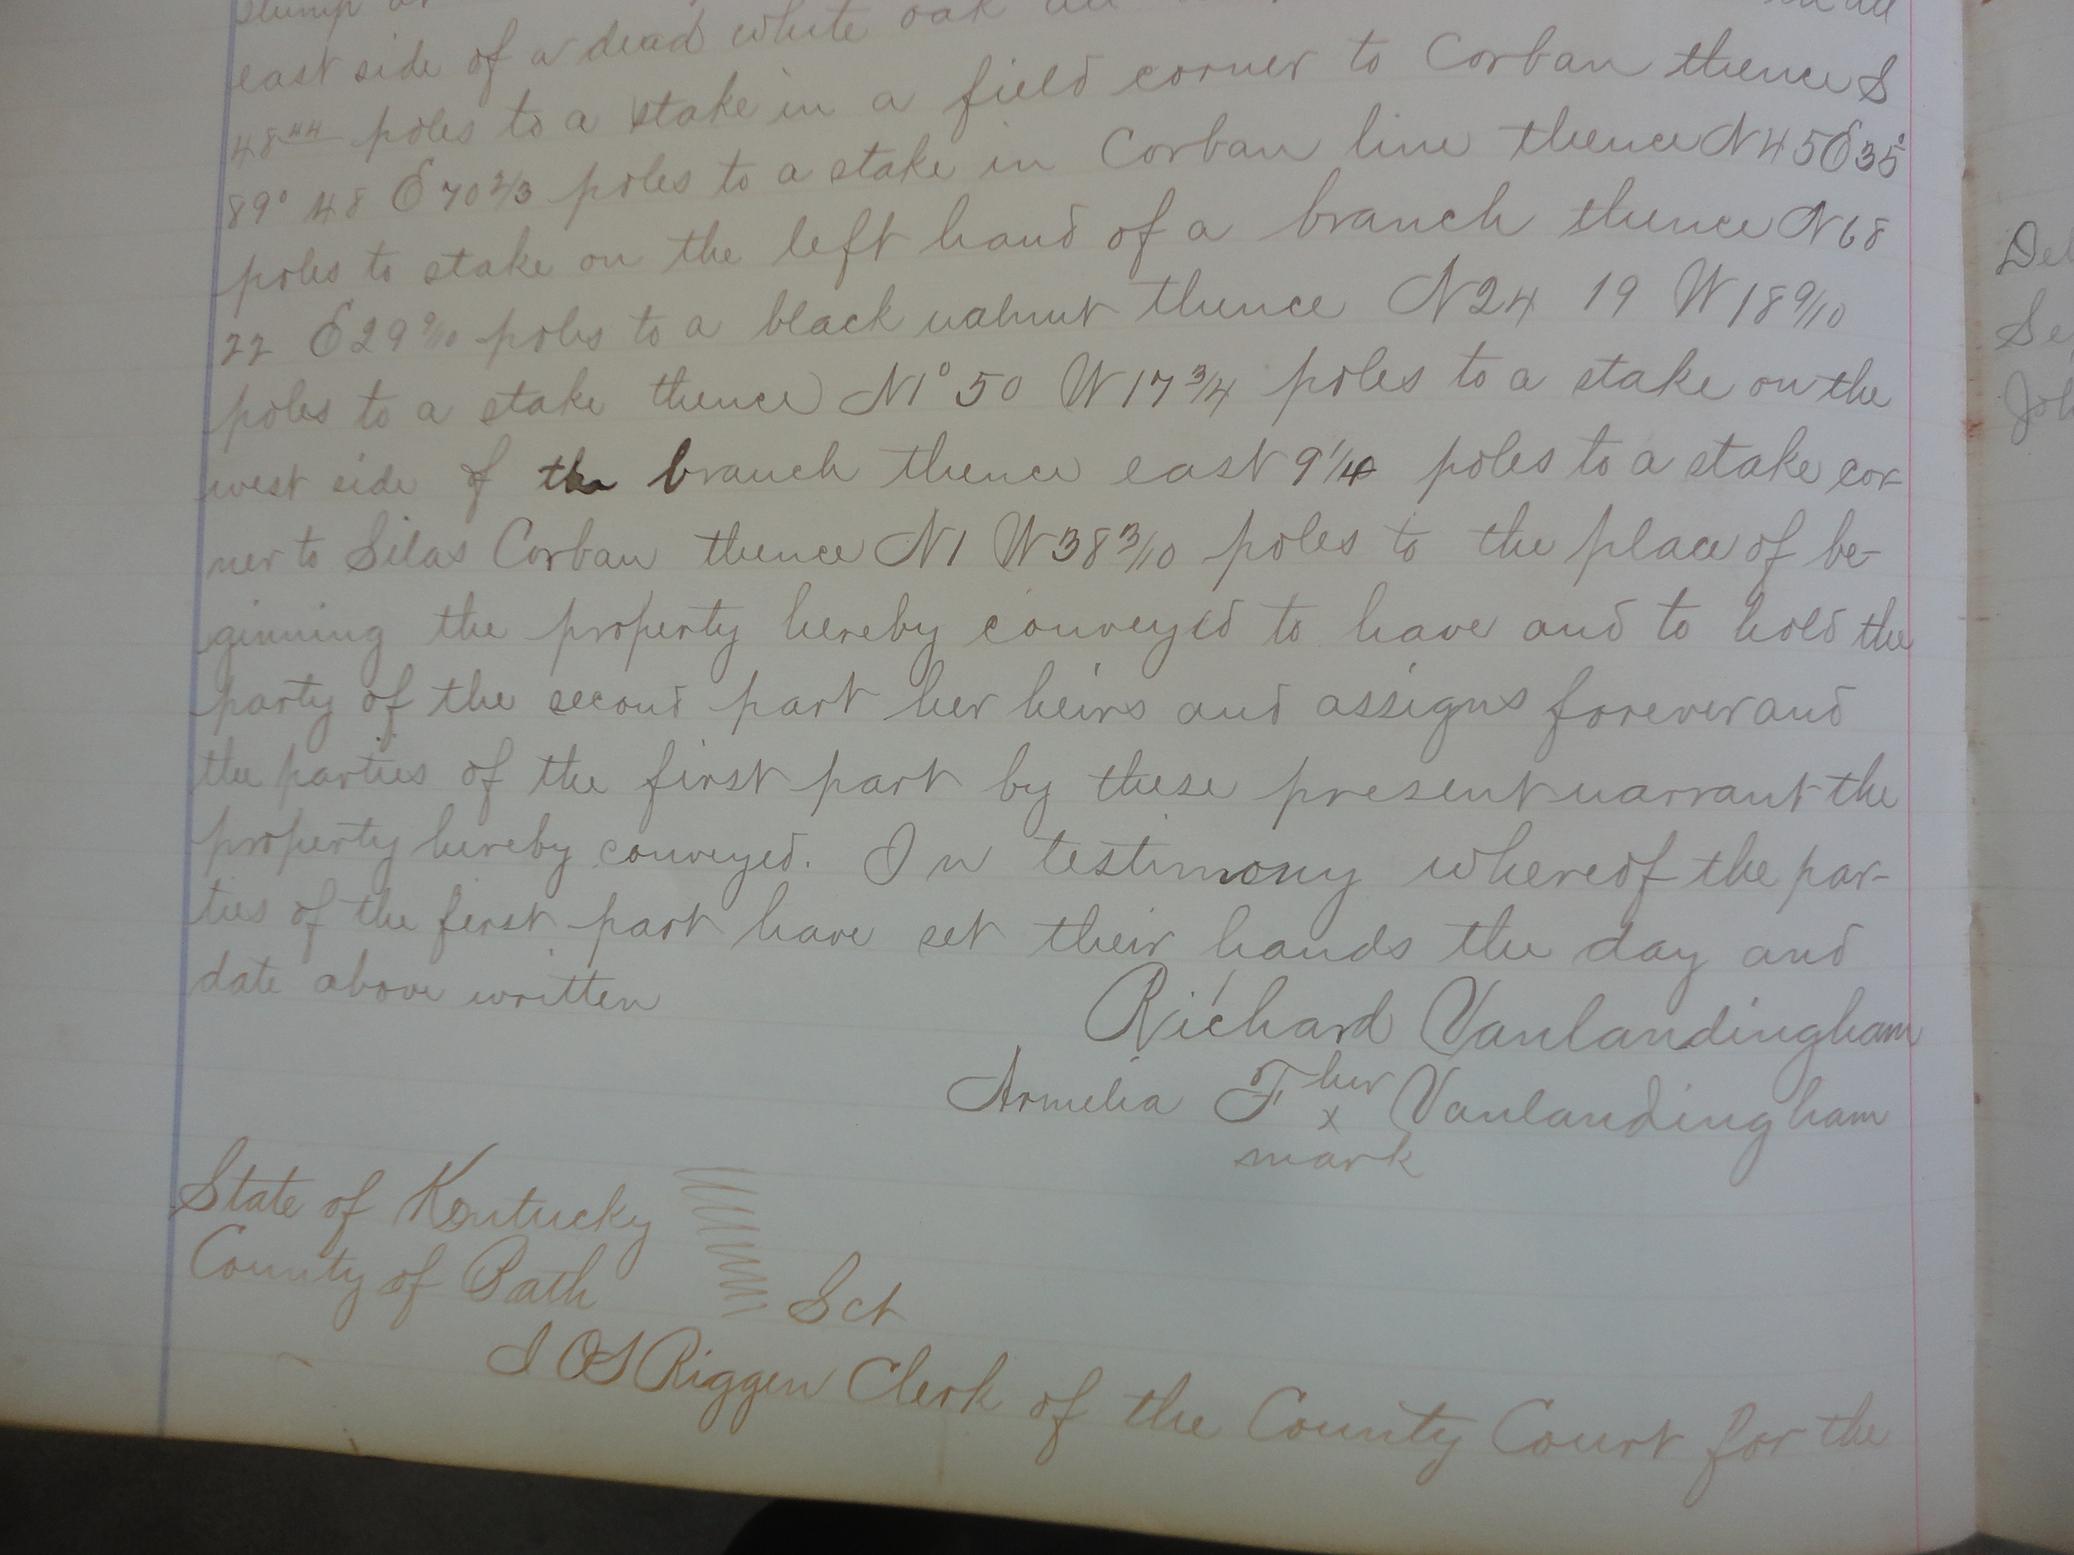 stump
east side of a dead white oak
48 44 poles to a stake in a field corner to Corban thence S
89° 48 E 70 2/3 poles to a stake in Corban line thence N 45 E 35
poles to stake on the left hand of a branch thence N 68
22 E 29 9/10 poles to a black walnut thence N 24 19 W 18 9/10
poles to a stake thence N 1° 50 W 17 3/4 poles to a stake on the
west side of the branch thence east 9 1/4 poles to a stake cor-
ner to Silas Corban thence N 1 W 38 3/10 poles to the place of be-
ginning the property hereby conveyed to have and to hold the
party of the second part her heirs and assigns forever and
the parties of the first part by these present warrant the
property hereby conveyed. In testimony whereof the par-
ties of the first part have set their hands the day and
date above written
Richard Vanlandingham
Armelia F her x Vanlandingham
mark
State of Kentucky
County of Bath Sct
I O S Riggen Clerk of the County Court for the
Del
Se
Joh